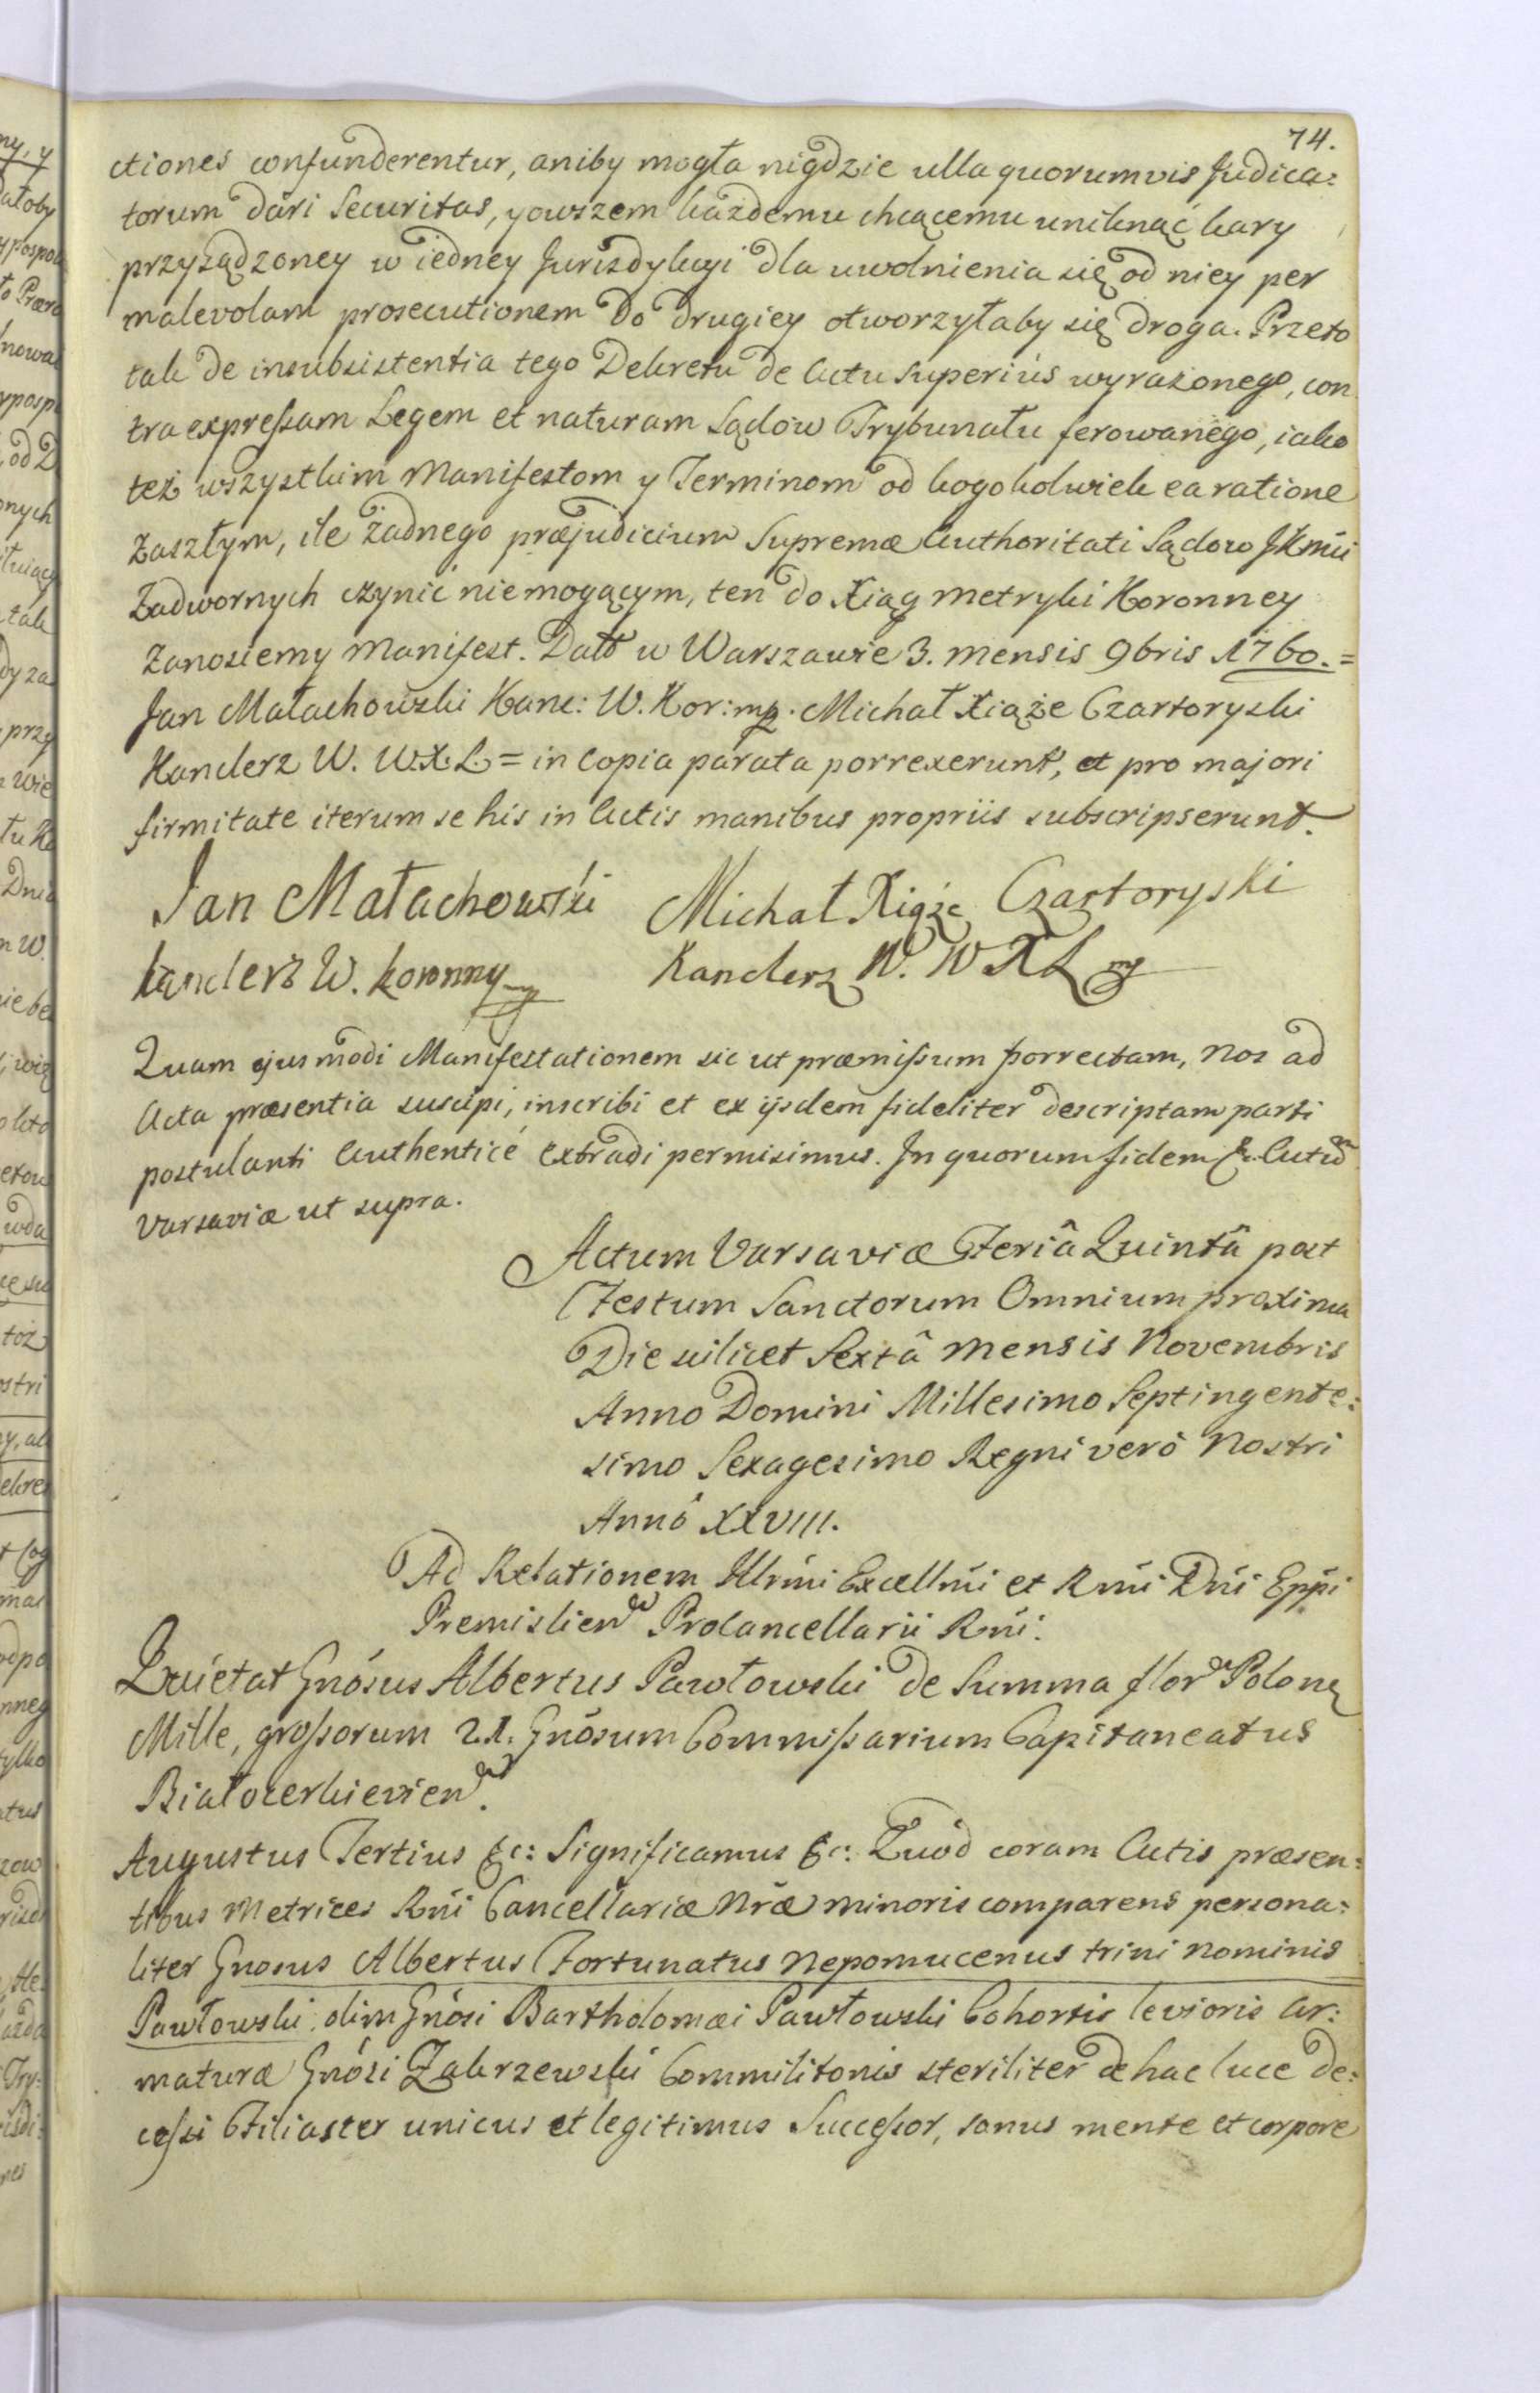 74.
ctiones confunderentur, aniby mogła nigdzie ulla quorumvis Judica:
torum dari Securitas, y owszem każdemu chcącemu uniknąć kary
przysądzoney w iedney Jurisdykcyi dla uwolnienia się od niey per
malevolam prosecutionem do drugiey otworzyłaby się droga. Przeto
tak de insubsistentia tego Dekretu de Actu superius wyrażonego, con
tra expressam Legem et naturam Sądow Trybunału ferowanego, iako
też wszystkim Manifestom y Terminom od kogokolwiek ea ratione
zaszłym, ile żadnego præjudicium Supremæ Authoritati Sądow JKMci
Zadwornych czynić niemogącym, ten do Xiąg Metryki Koronney
Zanosiemy Manifest. Datt w Warszawie 3. mensis 9bris 1760. =
Jan Małachowski Kanc: W. Kor: mp. Michał Xiąże Czartoryski
Kanclerz W. W.X.L. = in Copia parata porrexerunt, et pro majori
firmitate iterum se his in Actis manibus propriis subscripserunt.
Jan Małachowski Michał Xiąże Czartoryski
kanclerz W. koronny mp Kanclerz W. W X L mp
Quam ejusmodi Manifestationem sic ut præmissum porrectam, Nos ad
Acta præsentia suscipi, inscribi et ex ijsdem fideliter descriptam parti
postulanti Authenticé extradi permisimus. In quorum fidem &c. Actum
Varsaviæ ut supra.
Actum Varsaviæ Feriâ Quintâ post
Festum Sanctorum Omnium proxima
Die scilicet Sextâ Mensis Novembris
Anno Domini Millesimo Septingente:
simo Sexagesimo Regni verò Nostri
Annô XXVIII.
Ad Relationem Illrmi Excellmi et Rmi Dni Eppi
Premislien Procancellarii Rni:
Quietat Gnosus Albertus Pawłowski de Summa flor Polon
Mille, grossorum 21. Gnosum Commissarium Capitaneatus
Białocerkievien.
Augustus Tertius &c: Significamus &c: Quod coram Actis præsen:
tibus Metrices Rni Cancellariæ Nræ minoris comparens persona:
liter Gnosus Albertus Fortunatus Nepomucenus trini nominis
Pawłowski, olim Gnosi Bartholomæi Pawłowski Cohortis levioris Ar:
maturæ Gnosi Zakrzewski Commilitonis steriliter de hac luce de:
cessi Filiaster unicus et legitimus Successor, sanus mente et corpore